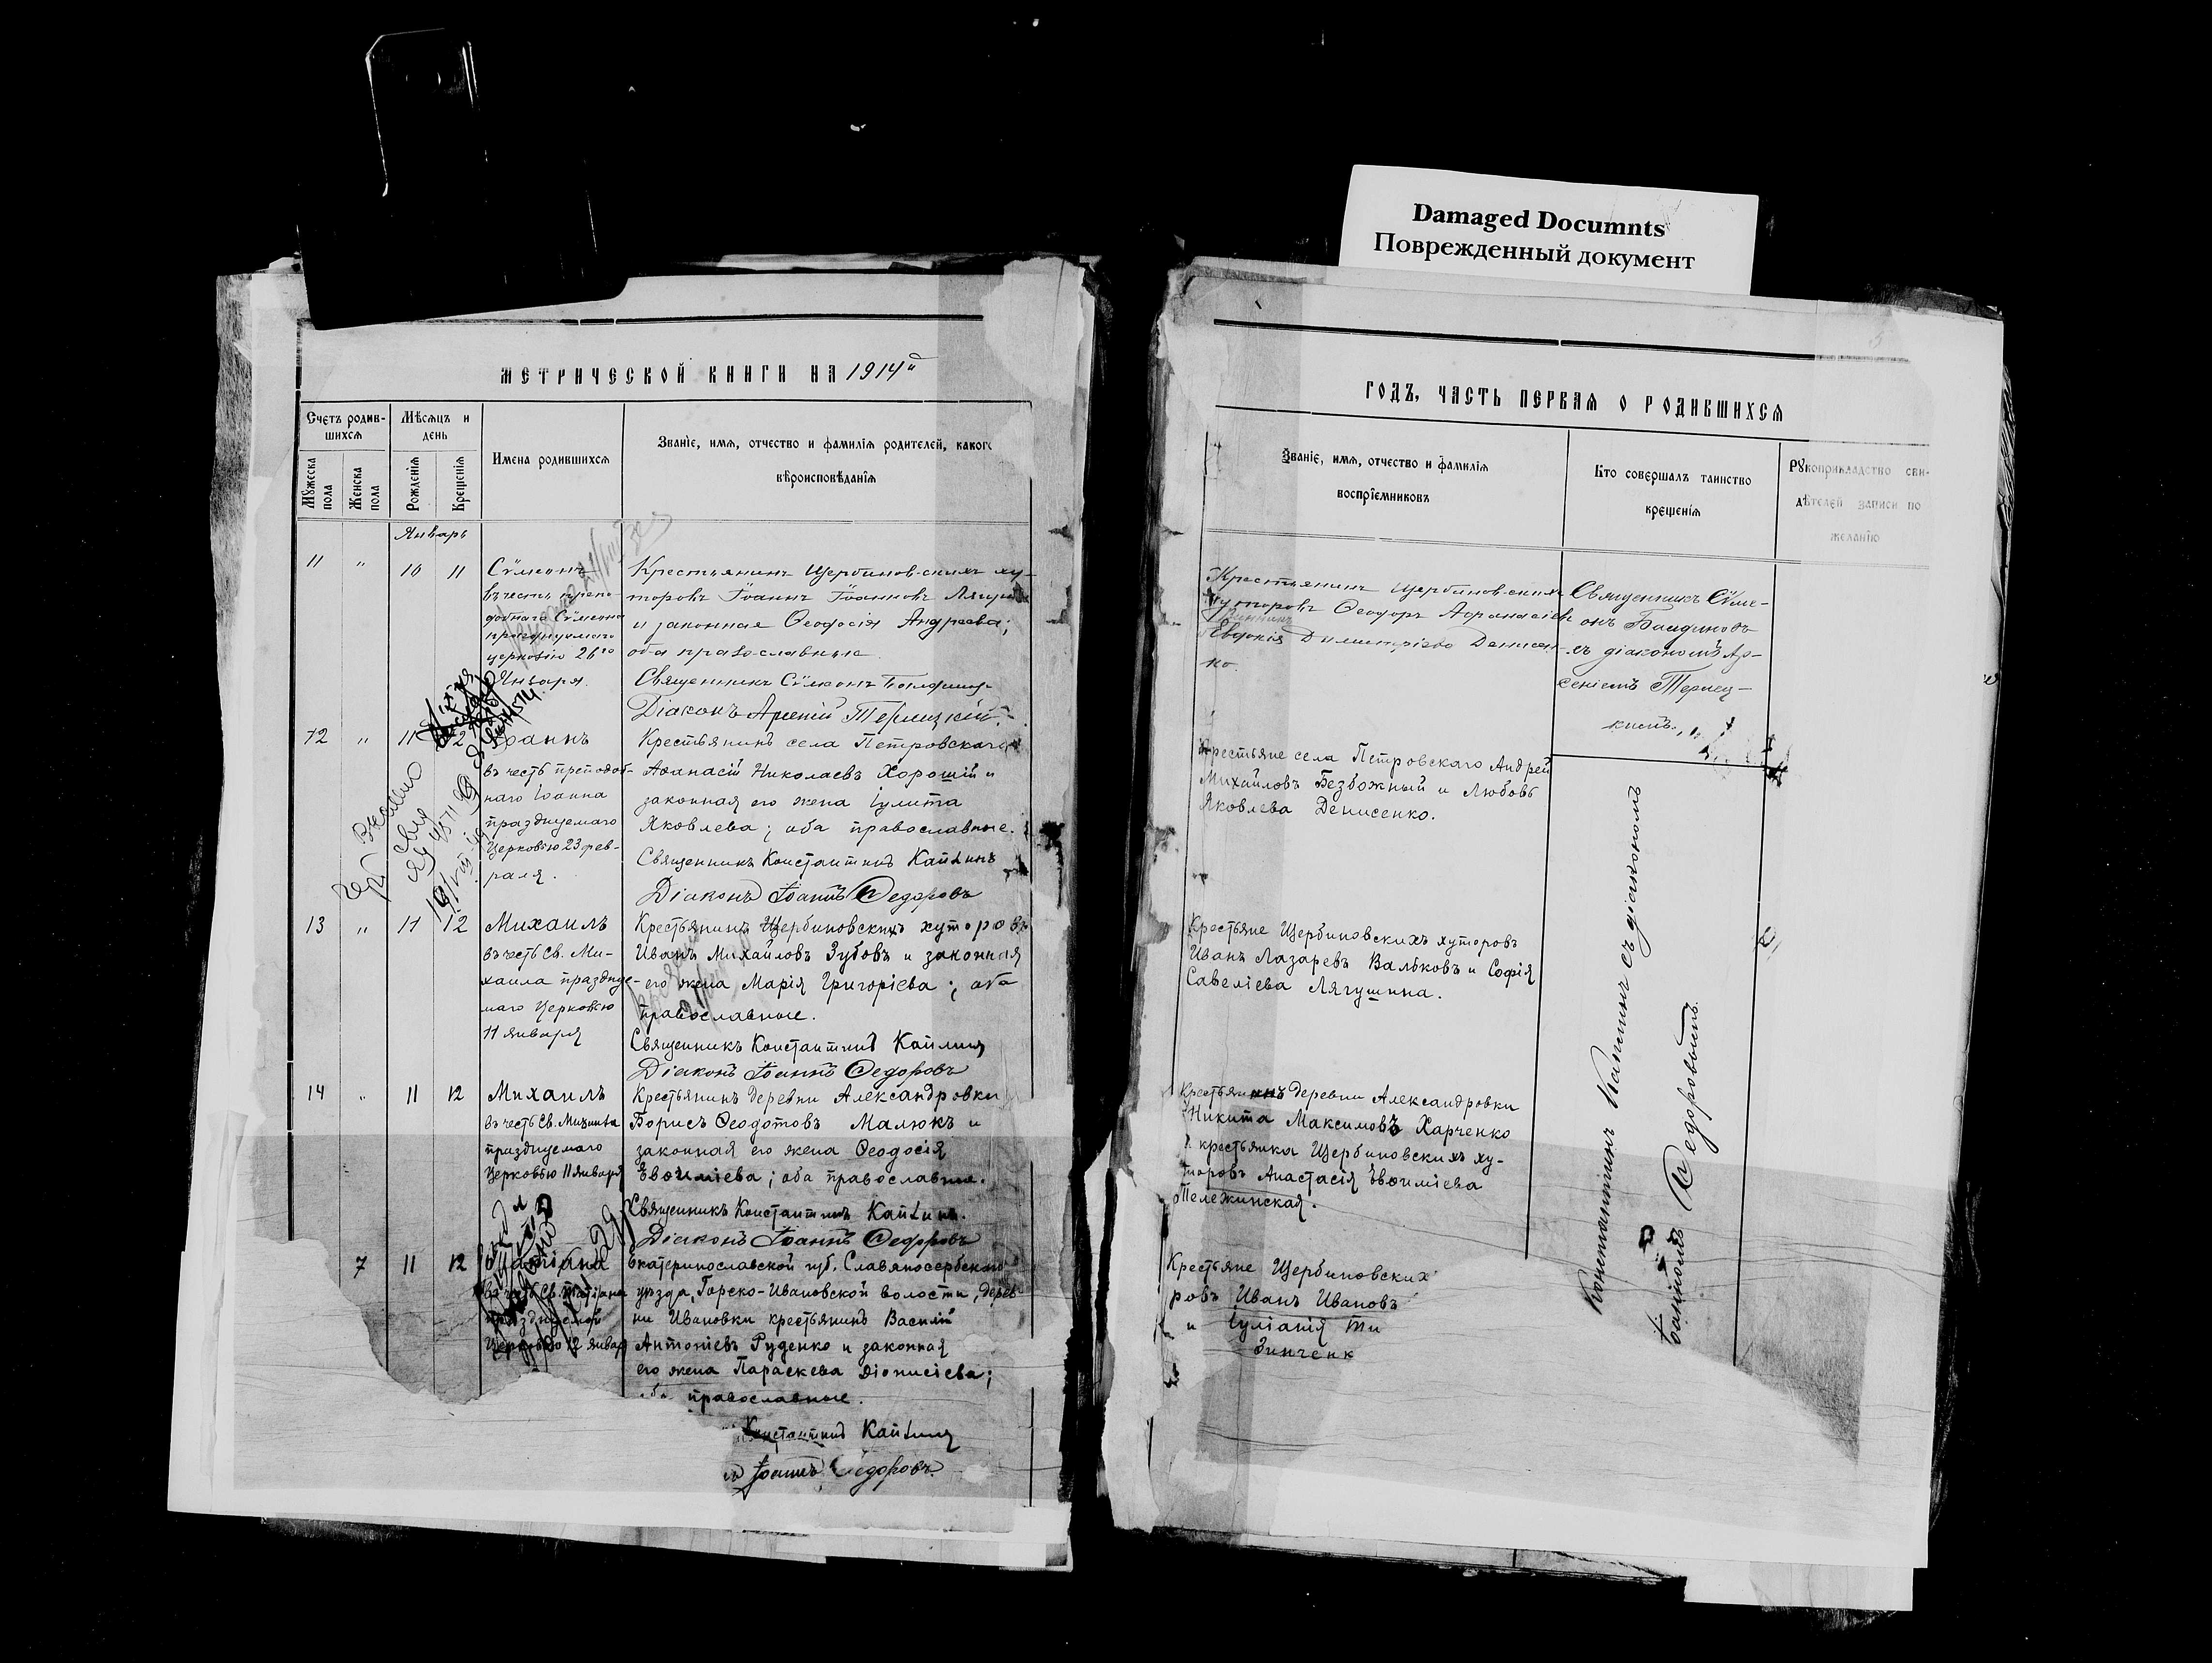 Damaged Documnts
Поврежденный документ
МЕТРИЧЕСКОЙ КНИГИ НА 1914й
Счетъ родив-
шихся
Мѣсяцъ и
день
Имена родившихся
Званіе, имя, отчество и фамилія родителей, каког
вѣроисповѣданія
Мужеска
пола
Женска
пола
Рожденія
Крещенія
Январь
11 " 10 11 Сѵмеонъ
въ честь препо
добнаго Сѵмеона
церковію 26го
Января.
Крестьянинъ Щербиновскихъ ху-
торовъ Іоаннъ Іоанновъ
и законная Ѳеодосія Андреева;
оба православные
Священникъ Сѵмеонъ
Діаконъ Арсеній Терлецкій.
12 " 11 12 Іоаннъ
въ честь преподоб-
наго Іоанна
празднуемаго
Церковью 23 фев-
раля.
Крестьянинъ села Петровскаго
Аѳанасій Николаевъ Хорошій и
законная его жена Іулита
Яковлева; оба православные.
Священникъ Константинъ
Діаконъ Іоаннъ Ѳедоровъ
13 " 11 12 Михаилъ
въ честь Св. Ми-
хаила праздңуе-
маго Церковью
11 января
Крестьянинъ Щербиновскихъ хуторовъ
Иванъ Михайловъ Зубовъ и законная
его жена Марія Григоріева; оба
православные.
Священникъ Константинъ
Діаконъ Іоаннъ Ѳедоровъ
14 " 11 12 Михаилъ
въ честь Св. Михаила
празднуемаго
Церковью 11 января
Крестьянинъ деревни Александровки
Борисъ Ѳеодотовъ Малюкъ и
законная его жена Ѳеодосія
Евѳиміева; оба православные.
Священникъ Константинъ
Діаконъ Іоаннъ Ѳедоровъ
7 11 12 Татіана
въ честь Св. Татіаны
Церковью 12 январ
Екатеринославской губ. Славяносербскаго
уѣзда, Горско-Ивановской волости, дерев-
ни Ивановки крестьянинъ Василій
Антоніевъ Руденко и законная
его жена Параскева Діонисіева;
оба православные.
Константинъ
Іоаннъ Ѳедоровъ.
ГОДЪ, ЧАСТЬ ПЕРВАЯ О РОДИВШИХСЯ
Званіе, имя, отчество и фамилія
воспріемниковъ
Кто совершалъ таинство
крещенія
Рукоприкладство сви-
дѣтелей записи по
желанію
Крестьянинъ Щербиновскихъ
хуторовъ Ѳеодоръ Аѳанасіевъ
Евдокія Димитріева Денисен-
ко.
Священникъ Сѵме-
онъ
съ діакономъ Ар-
сеніемъ Терлец-
кимъ.
Крестьяне села Петровскаго Андрей
Михайловъ Безбожный и Любовь
Яковлева Денисенко.
Крестьяне Щербиновскихъ хуторовъ
Иванъ Лазаревъ Вальковъ и Софія
Савеліева Лягушина.
Крестьянинъ деревни Александровки
Никита Максимовъ Харченко
и крестьянка Щербиновскихъ ху-
торовъ Анастасія Евѳиміева
Тележинская.
Крестьяне Щербиновских
ровъ Иванъ Ивановъ
и Іуліанія Ти
Зинченк
Константинъ съ діакономъ
Іоанномъ Ѳедоровымъ.